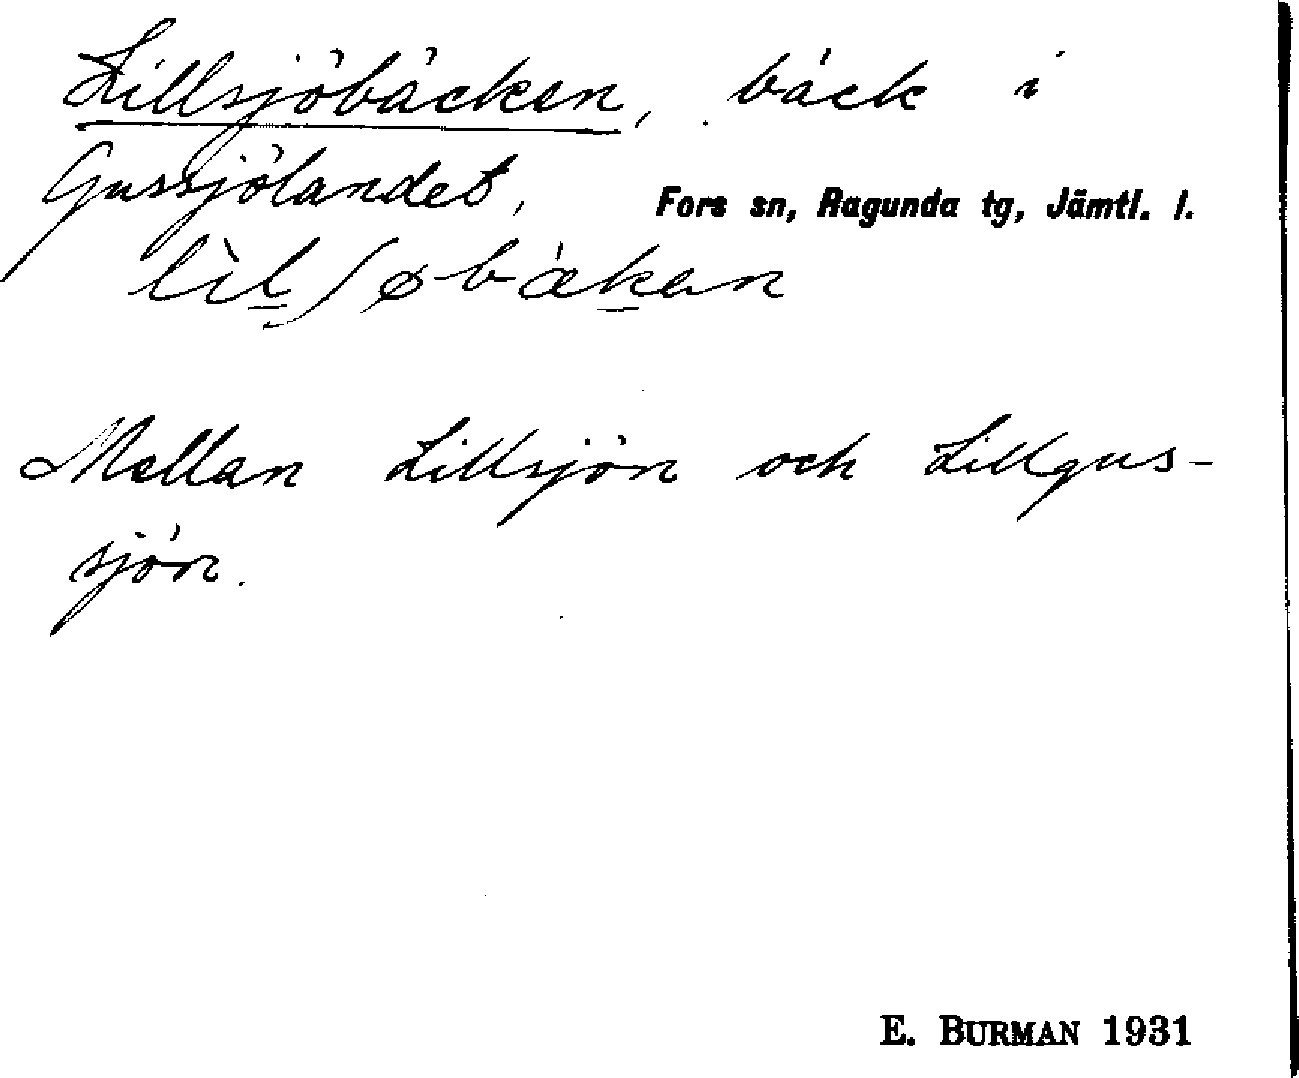 Lillsjöbäcken, bäck i
Gussjölandet, Fors sn, Ragunda tg, Jämtl. l.
lìlʃøbækan
Mellan Lillsjön och Lillgus-
sjön.
E. BURMAN 1931